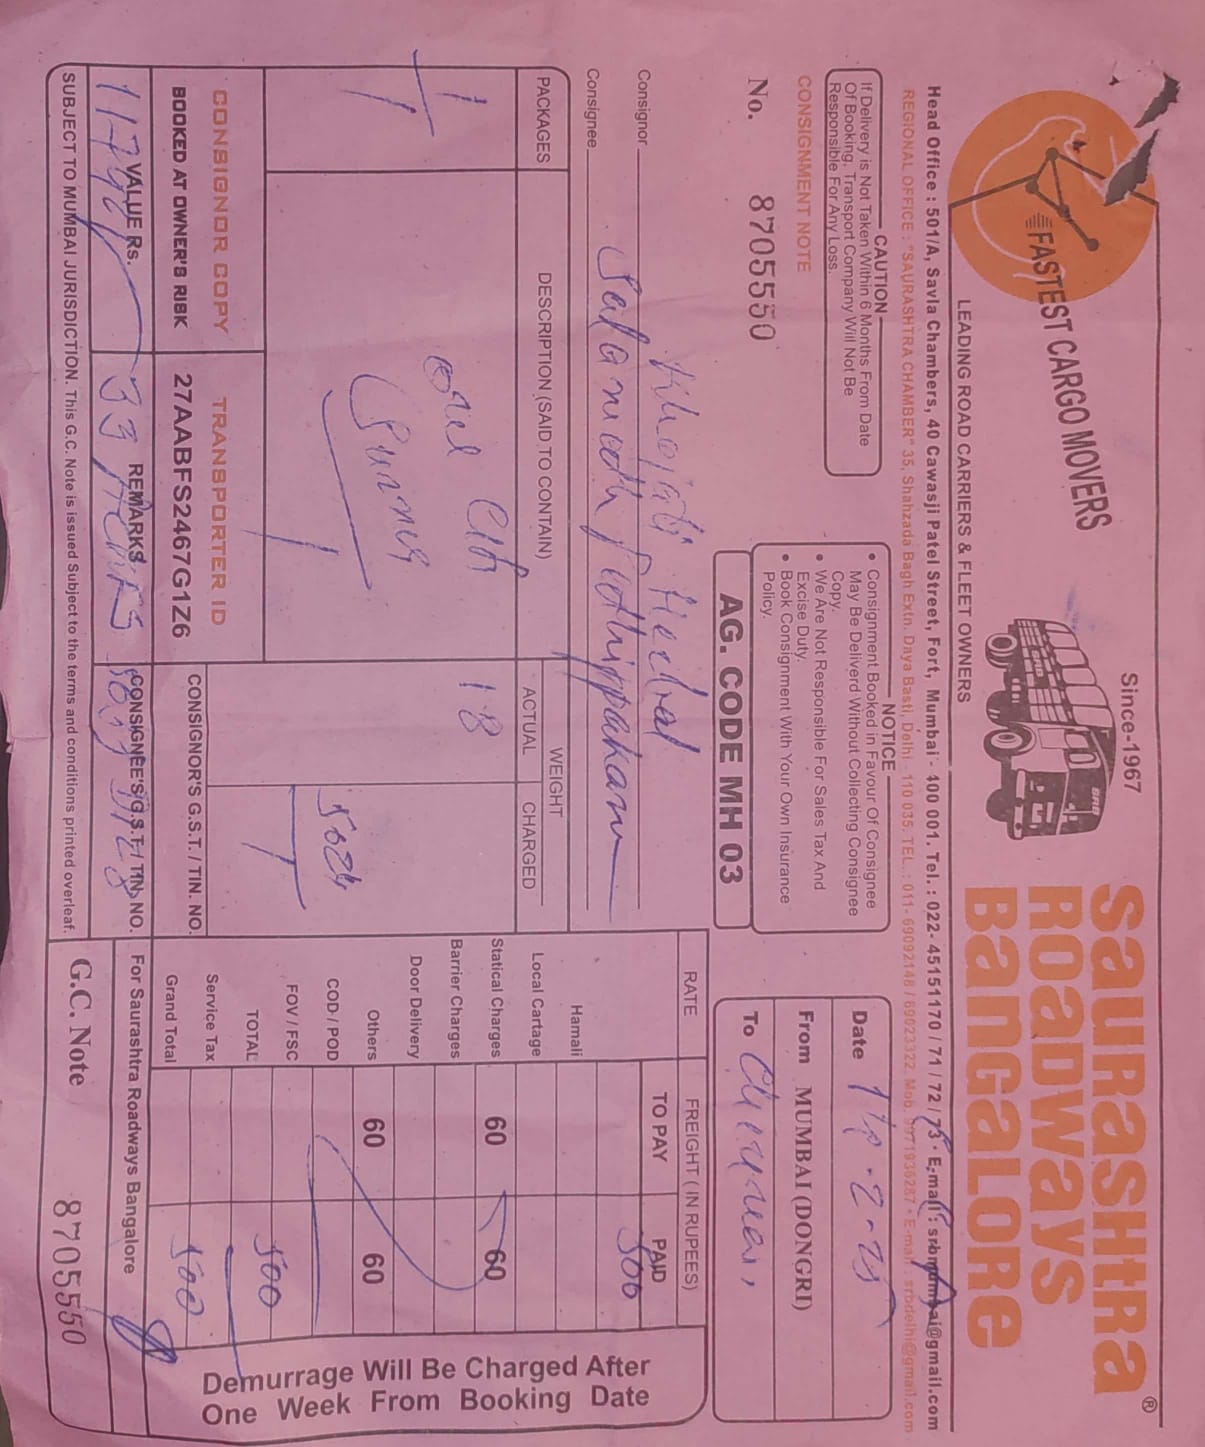 FASTEST CARGO MOVERS
Since-1967
SRB
SAURASHTRA
ROADWAYS
BANGALORE
®
LEADING ROAD CARRIERS & FLEET OWNERS
Head Office : 501/A, Savla Chambers, 40 Cawasji Patel Street, Fort, Mumbai - 400 001. Tel. : 022- 45151170 / 71 / 72 / 73 • E-mail : srbmumbai@gmail.com
REGIONAL OFFICE : "SAURASHTRA CHAMBER" 35, Shahzada Bagh Extn. Daya Basti, Delhi - 110 035. TEL. : 011- 69092148 / 69023322, Mob. 9971935287 • E-mail : srbdelhi@gmail.com
CAUTION
If Delivery is Not Taken Within 6 Months From Date
Of Booking, Transport Company Will Not Be
Responsible For Any Loss.
NOTICE
• Consignment Booked in Favour Of Consignee
May Be Deliverd Without Collecting Consignee
Copy.
• We Are Not Responsible For Sales Tax And
Excise Duty.
• Book Consignment With Your Own Insurance
Policy.
Date 18-2-25
From MUMBAI (DONGRI)
To Chennai,
CONSIGNMENT NOTE
No. 8705550
AG. CODE MH 03
Consignor
Consignee
PACKAGES
DESCRIPTION (SAID TO CONTAIN)
WEIGHT
ACTUAL
CHARGED
RATE
FREIGHT ( IN RUPEES)
TO PAY
PAID
500
Hamali
Local Cartage
Statical Charges 60 60
Barrier Charges
Door Delivery
Others 60 60
COD / POD
FOV / FSC
TOTAL 500
Service Tax
Grand Total 500
1
18
CONSIGNOR COPY
BOOKED AT OWNER'S RISK
TRANSPORTER ID
27AABFS2467G1Z6
CONSIGNOR'S G.S.T. / TIN. NO.
VALUE RS.
REMARKS
CONSIGNEE'S G.S.T. / TIN. NO.
For Saurashtra Roadways Bangalore
Demurrage Will Be Charged After
One Week From Booking Date
SUBJECT TO MUMBAI JURISDICTION. This G.C. Note is issued Subject to the terms and conditions printed overleaf.
G.C. Note 8705550